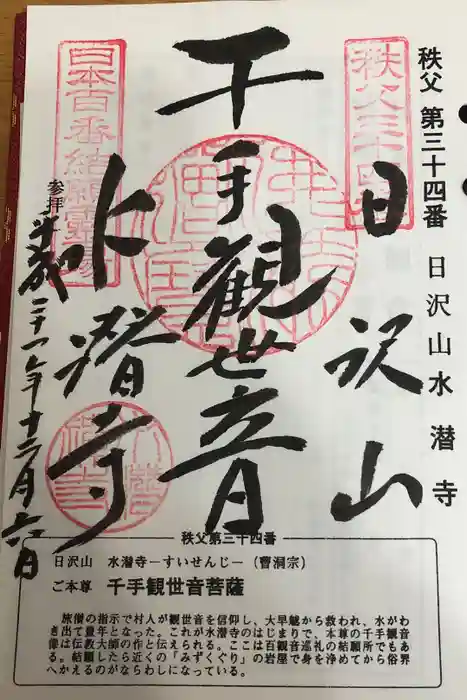 秩父 第三十四番 日沢山水潜寺
秩父三十四
日沢山
千手観世音
日本百番結願霊場
水潜寺
参拝
平成二十一年十二月
秩父第三十四番
日沢山 水潜寺ーすいせんじー（曹洞宗）
ご本尊 千手観世音菩薩
旅僧の指示で村人が観世音を信仰し、大旱魃から救われ、水がわ
き出て豊年となった。これが水潜寺のはじまりで、本尊の千手観音
像は伝教大師の作と伝えられる。ここは百観音巡礼の結願所でもあ
る。結願したら近くの「みずくぐり」の岩屋で身を浄めてから俗界
へかえるのがならわしになっている。